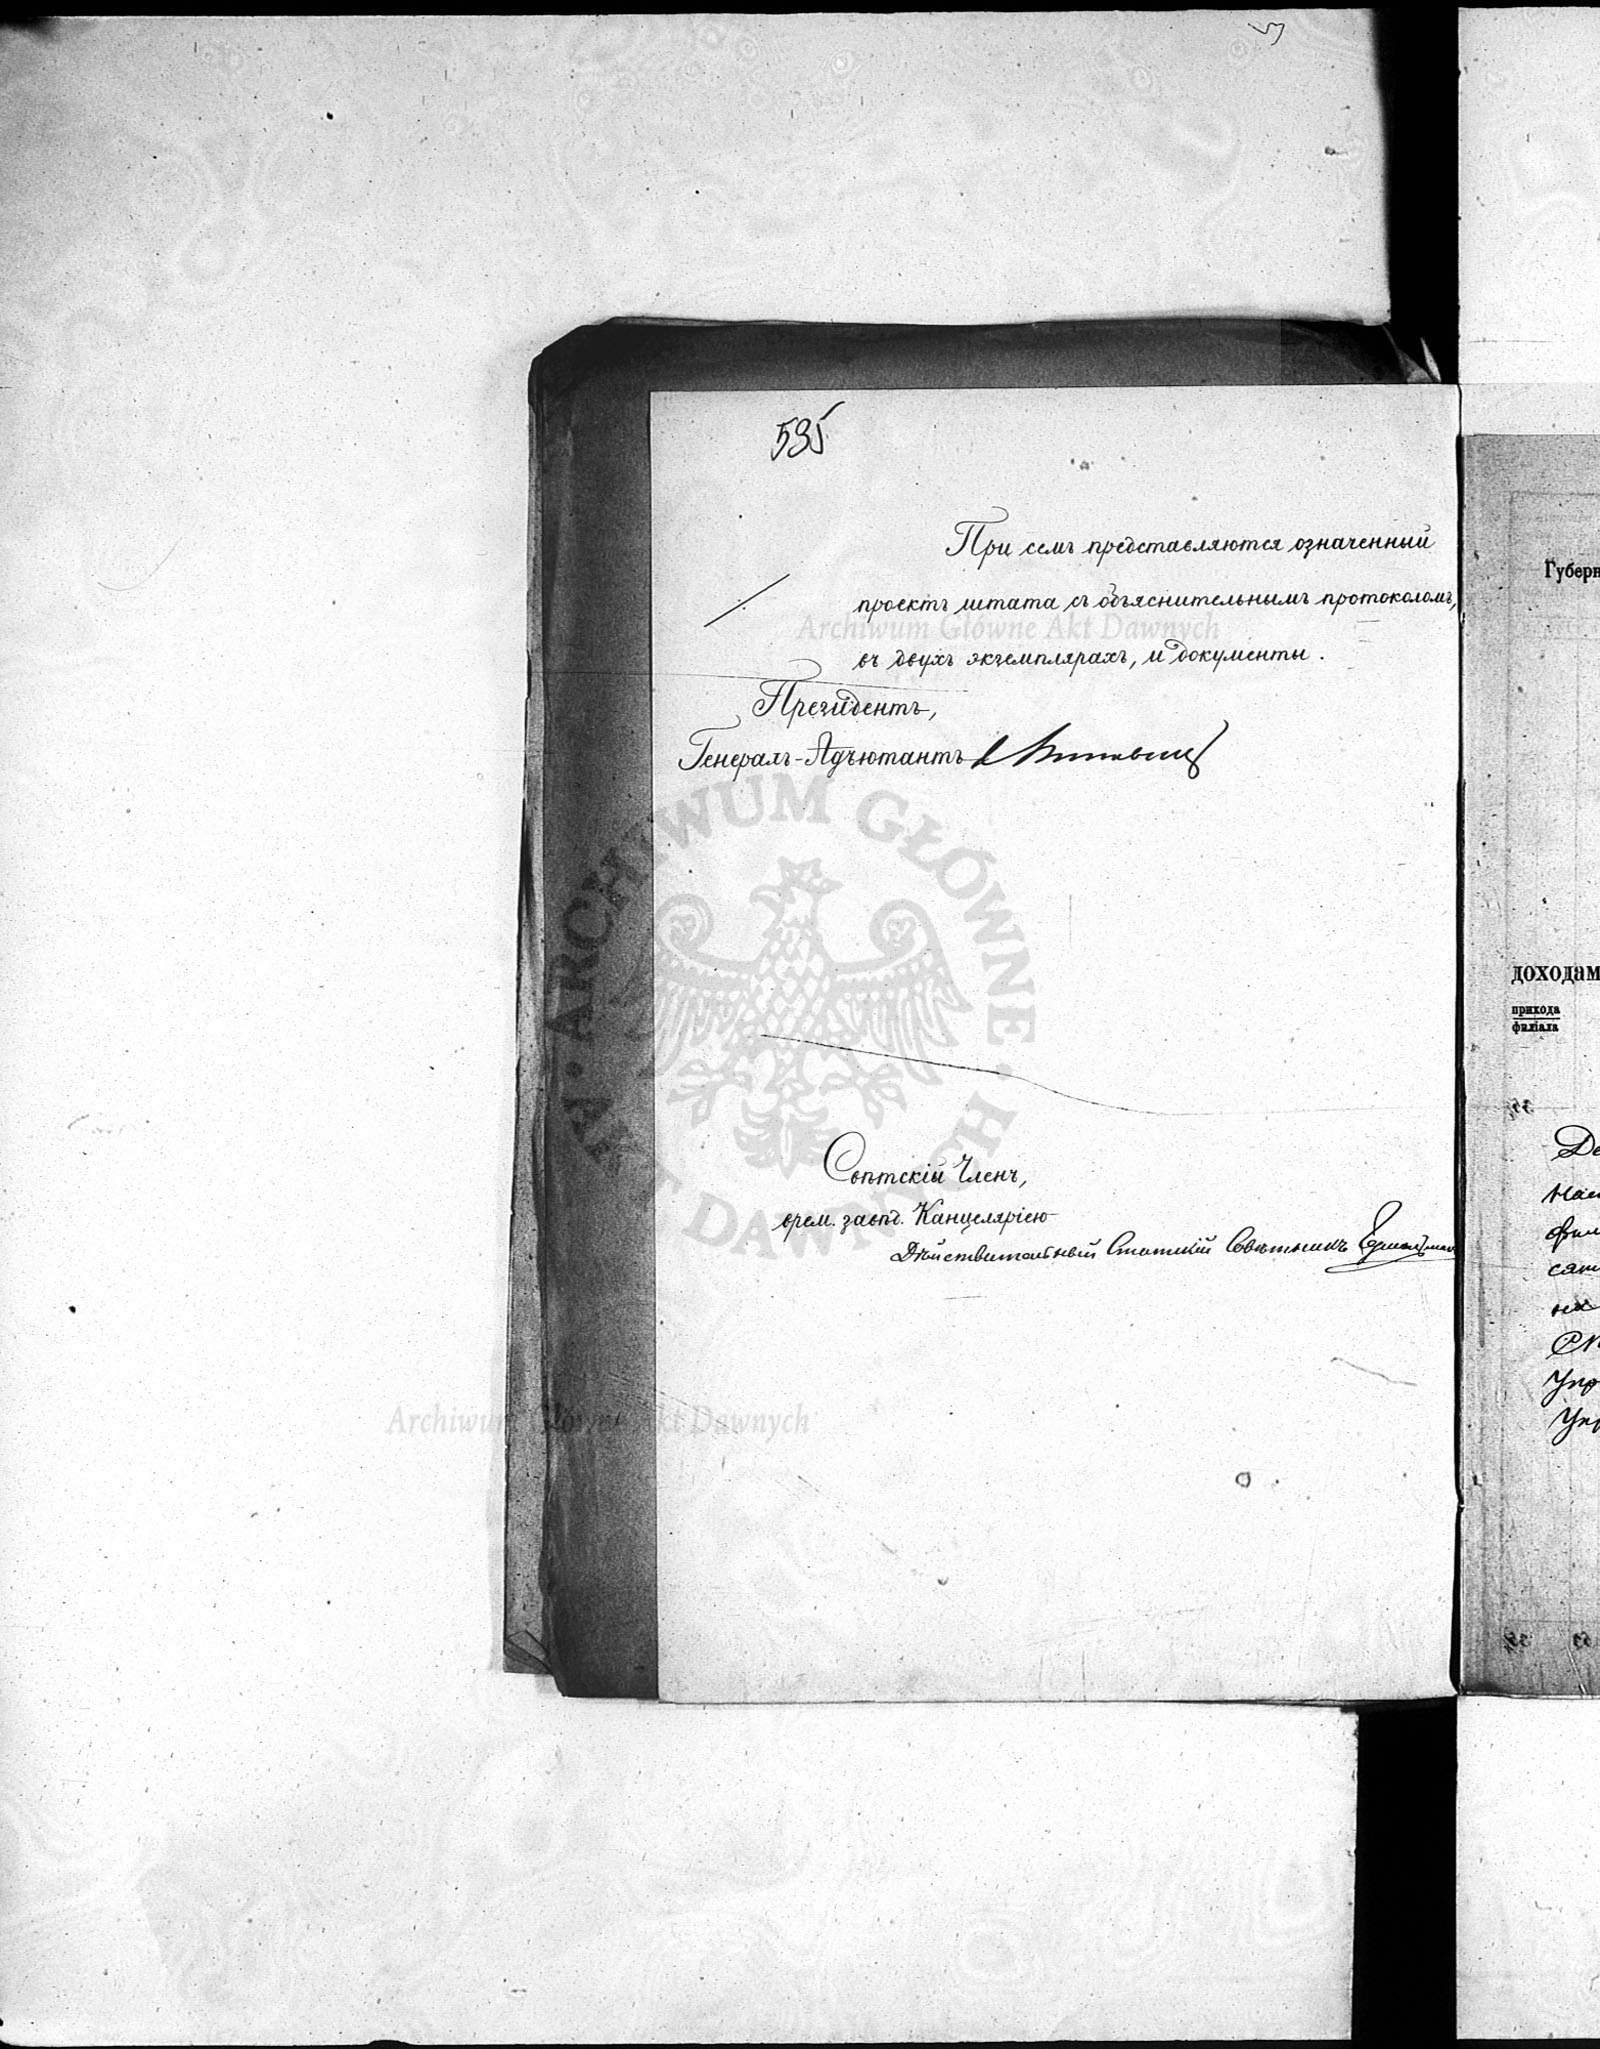 595
При семъ представляются означенный
проектъ штата съ объяснительнымъ протоколомъ,
въ двухъ экземплярахъ, и документы.
Президентъ,
Генералъ-Адъютантъ
Совѣтскій Членъ,
врем. завѣд. Канцеляріею
Дѣйствительный Статскій Совѣтникъ
Archiwum Główne Akt Dawnych
ARCHIWUM GŁÓWNE AKT DAWNYCH
Archiwum Główne Akt Dawnych
Губерн
доходам
прихода
филіала